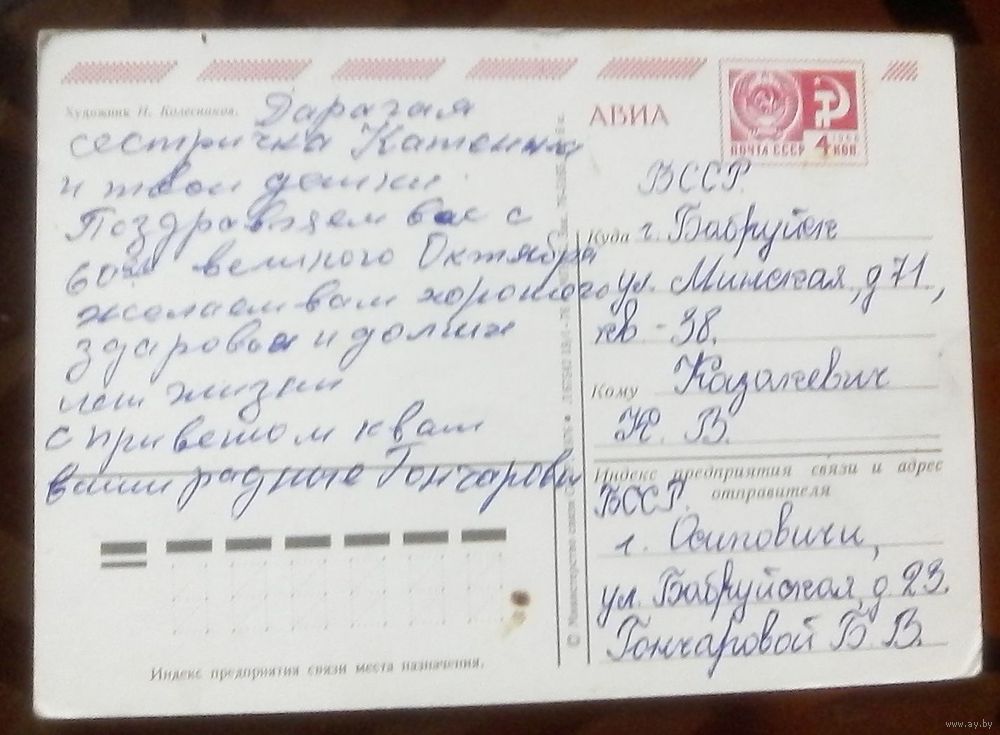 Художник Н. Колесников.
Дарагая
сестричка Катенька
и твои детки.
Поздравляем вас с
60ти великого Октября
желаем вам хорошего
здаровья и долгих
лет жизни
с приветом к вам
ваши радные Гончаровы
Индекс предприятия связи места назначения.
© Министерство связи СССР
АВИА
ПОЧТА СССР 4 КОП.
1966
БССР
Куда г. Бабруйск
ул. Минская, д 71,
кв - 38.
Кому Казакевич
К. В.
Индекс предприятия связи и адрес
отправителя
БССР.
г. Осиповичи,
ул. Бабруйская, д. 23.
Гончаровой Б. В.
www.ay.by